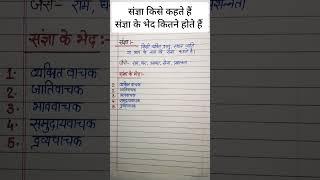 जैसे:- राम, घर,
संज्ञा किसे कहते हैं
संज्ञा के भेद कितने होते हैं
संज्ञा के भेद:-
1. व्यक्तिवाचक
2. जातिवाचक
3. भाववाचक
4. समुदायवाचक
5. द्रव्यवाचक
संज्ञा:-
किसी व्यक्ति, वस्तु, स्थान, जाति
या भाव के नाम को संज्ञा कहते हैं।
संज्ञा के भेद:-
1. व्यक्तिवाचक
2. जातिवाचक
3. भाववाचक
4. समुदायवाचक
5. द्रव्यवाचक